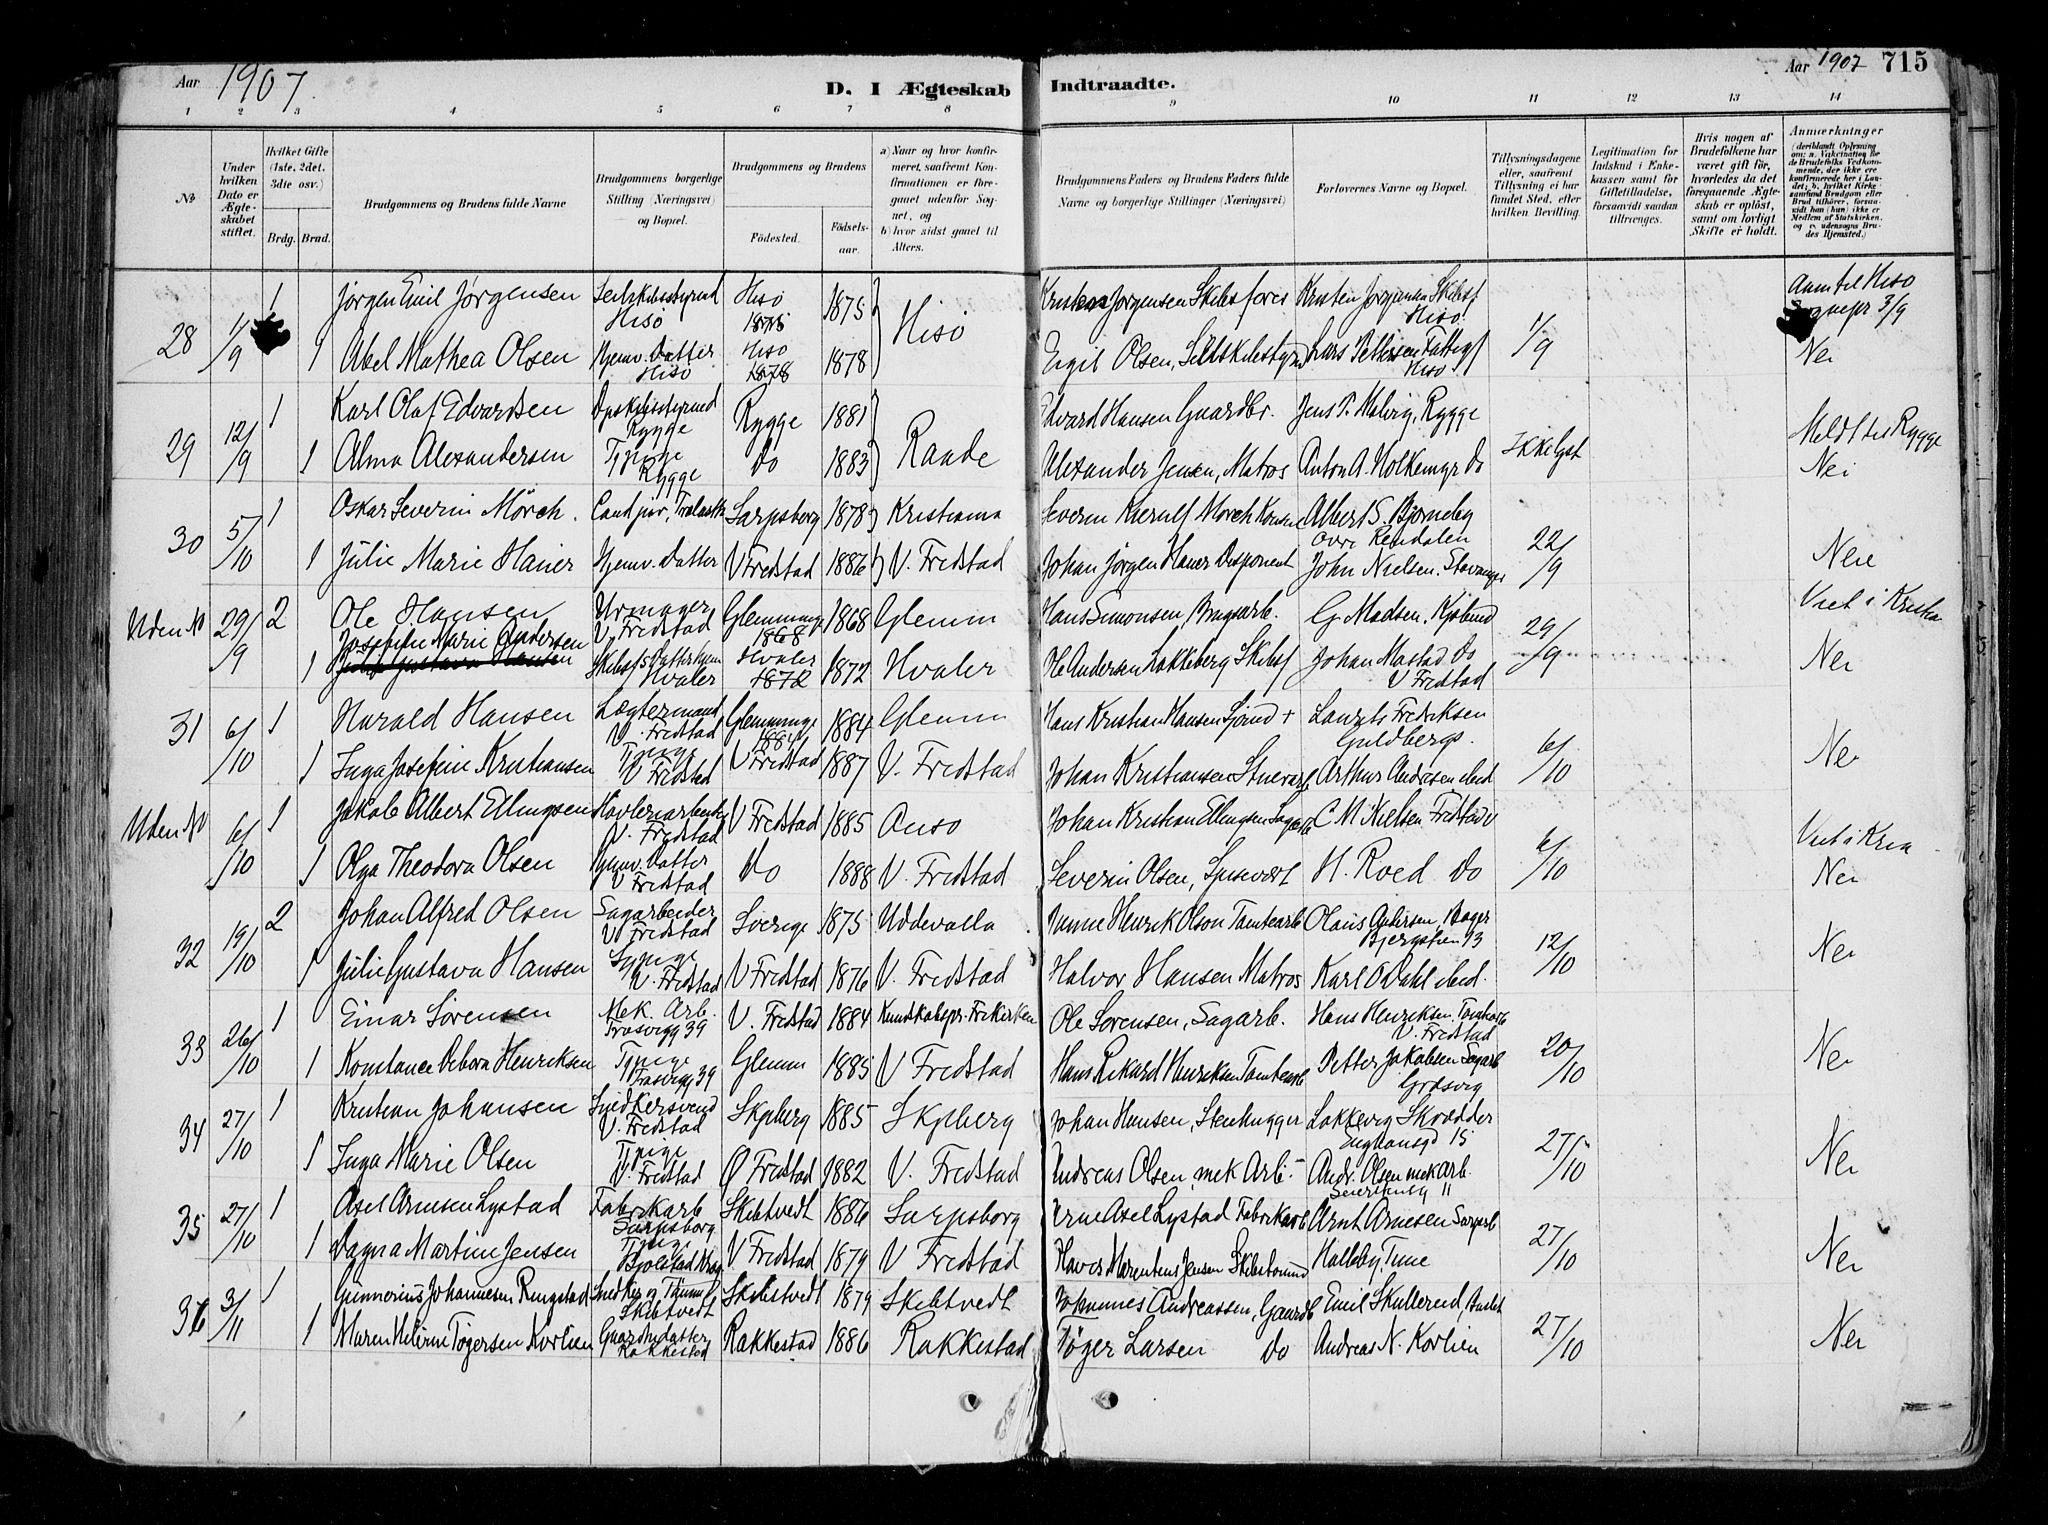 Aar 1907.
D. I Ægteskab Indtraadte.
Aar 1907 715
1 2 3 4 5 6 7 8 9 10 11 12 13 14
№
Under hvilken Dato er Ægteskabet stiftet.
Hvilket Gifte (1ste, 2det, 3die osv.)
Brdg. Brud.
Brudgommens og Brudens fulde Navne
Brudgommens borgerlige Stilling (Næringsvei) og Bopæl.
Brudgommens og Brudens
Fødested. Fødselsaar.
a) Naar og hvor konfirmeret, saafremt Konfirmationen er foregaaet udenfor Sognet, og
b) hvor sidst gaaet til Alters.
Brudgommens Faders og Brudens Faders fulde Navne og borgerlige Stillinger (Næringsvei)
Forlovernes Navne og Bopæl.
Tillysningsdagene eller, saafremt Tillysning ei har fundet Sted, efter hvilken Bevilling.
Legitimation for Indskud i Enkekassen samt for Giftetilladelse, forsaavidt saadan tiltrænges.
Hvis nogen af Brudefolkene har været gift før, hvorledes da det foregaaende Ægteskab er opløst, samt om lovligt Skifte er holdt.
Anmærkninger
28 1/9 1 Jørgen Emil Jørgensen Seilskibsstyrmd Hisø Hisø 1875 1875 Hisø Jørgensen Skibsfører Kristen Jørgensen Skibsf Hisø 1/9 Anm til Hisø Sognepr 3/9
1 Abel Mathea Olsen Hjemv. Datter Hisø Hisø 1878 1878 Olsen, Lars Hisø Nei
29 12/9 1 Karl Olaf Edvardsen Dpskibsstyrmd Rygge Rygge 1881 Raade Edvard Hansen Gaardbr. Jens P. Rygge Ikke lyst Meldt til Rygge
1 Alma Alexandersen Tjpige Rygge do 1883 Alexander Jensen, Matros Anton A. do Nei
30 5/10 1 Oskar Severin Mörch. Cand jur, Sarpsborg 1878 Kristiania Severin Kierulf Mörch Albert S. Bjørneby Øvre Rendalen 22/9
1 Julie Marie Hauer Hjemv. Datter V Fredstad 1886 V. Fredstad Johan Jørgen Hauer Disponent John Nielsen. Stavanger Nei
Uden № 29/9 2 Ole Hansen Urmager V. Fredstad Glemminge 1868 1868 Glemm Hans Simonsen, G. Madsen, 29/9 Viet i Kristia
1 Josefine Marie Andersen Hvaler Hvaler 1872 1872 Hvaler Ole Andersen Løkkeberg Skibsf Johan Mastad do V Fredstad Nei
31 6/10 1 Harald Hansen Lægtermand V. Fredstad Glemminge 1884 1884 Glemm Hans Kristian Hansen Sjømd + Laurits Fredriksen Guldbergs. 6/10
1 Inga Josefine Kristiansen Tjpige V Fredstad V Fredstad 1887 V. Fredstad Johan Kristiansen Stuearb Arthur Andresen ibid Nei
Uden № 6/10 1 Jakob Albert Ellingsen Høvleriarbeider V. Fredstad V Fredstad 1885 Onsø Johan Kristian Ellingsen Sagarb C M Nielsen Fredstad 6/10 Viet i Kria
1 Olga Theodora Olsen Hjemv. Datter V Fredstad do 1888 V. Fredstad Severin Olsen, Spisevært H. Roed do Nei
32 19/10 2 Johan Alfred Olsen Sagarbeider V Fredstad Sverige 1875 Uddevalla Henrik Olson Tomtearb Olaus Andersen, Bager Bjergstien 13 12/10
1 Julie Gustava Hansen Sypige V. Fredstad V Fredstad 1876 V. Fredstad Halvor Hansen Matros Karl O Dahl ibid. Nei
33 26/10 1 Einar Sørensen Mek. Arb. Trosvigg 39 V. Fredstad 1884 Kundskabspr. Frikirken Ole Sørensen, Sagarb. Hans Henriksen Tomtearb V. Fredstad 20/10
1 Konstance Debora Henriksen Tjpige Trosvigg 39 Glemm 1885 V Fredstad Hans Rikard Henriksen Tomtearb Petter Jakobsen Sagarb Gresvig Nei
34 27/10 1 Kristian Johansen Snedkersvend V. Fredstad Skjeberg 1885 Skjeberg Johan Hansen, Stenhugger Løkkevig Skrædder 15 27/10
1 Inga Marie Olsen Tjpige V. Fredstad Ø Fredstad 1882 V. Fredstad Andreas Olsen, mek Arb. Andr. Olsen mek Arb. 11 Nei
35 27/10 1 Axel Arnesen Lystad Fabrikarb Sarpsborg Skibtvedt 1886 Sarpsborg Arne Axel Lystad Fabrikarb Arnt Arnesen Sagarb 27/10
1 Dagna Martine Jensen Tjpige V Fredstad 1879 V Fredstad Jensen Skibstømmd Halleby, Tune Nei
36 3/11 1 Gunnerius Johannesen Ringstad Snedker og Tømm Skibtvedt Skibtvedt 1879 Skibtvedt Johannes Andreassen, Gaardb Emil Skullerud, 27/10
1 Maren Helene Tøgersen Korlien Gaardbrdatter Rakkestad Rakkestad 1886 Rakkestad Tøger Larsen do Andreas N. Korlien Nei